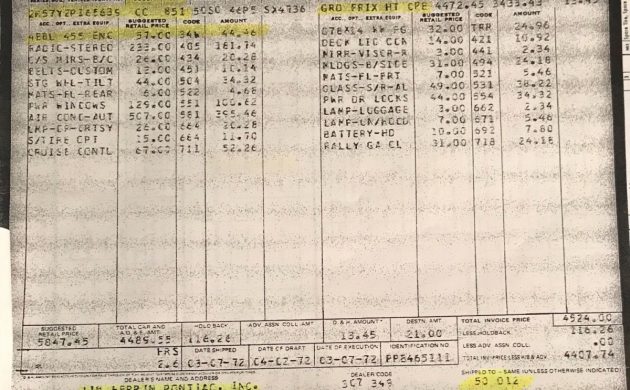 2K57Y2P CC 851 GRD PRIX HT CPE 4472.45
ACC. OPT. EXTRA EQUIP. SUGGESTED RETAIL PRICE CODE AMOUNT ACC. OPT. EXTRA EQUIP. SUGGESTED RETAIL PRICE CODE AMOUNT
4BBL 455 ENC 57.00 34 44.46 G78X14 32.00 TRR 24.96
RADIO-STEREO 233.00 405 181.74 DECK LID 14.00 421 10.92
C/S MIRS-B/C 26.00 434 20.28 MIRR-VISER-R 3.00 441 2.34
BELTS-CUSTOM 451 MLDGS-B/SIDE 31.00 494 24.18
STG WHL-TILT 44.00 504 34.32 MATS-FL-FRT 7.00 521 5.46
MATS-FL-REAR 6.00 522 4.68 GLASS-S/R-AL 49.00 531 38.22
PWR WINDOWS 129.00 551 100.62 PWR DR LOCKS 44.00 554 34.32
AIR COND-AUT 507.00 581 395.46 LAMP-LUGGAGE 3.00 662 2.34
LMP-DP-CRTSY 26.00 664 20.28 LAMP- 7.00 671 5.46
S/TIRE CPT 15.00 684 11.70 BATTERY-HD 10.00 692 7.80
CRUISE CONTL 67.00 711 52.26 RALLY GA CL 31.00 718 24.18
SUGGESTED RETAIL PRICE TOTAL CAR AND A.O.& E. AMT. HOLD BACK ADV. ASSN COLL. AMT D. & H. AMOUNT DESTN. AMT. TOTAL INVOICE PRICE 4524.00
5847.45 4489.55 116.26 13.45 21.00 LESS: HOLDBACK 116.26
LESS: ADV. ASSN COLL. .00
FRS DATE SHIPPED DATE OF DRAFT DATE OF EXECUTION IDENTIFICATION NO.
2.6 03-07-72 04-02-72 03-07-72 PP8465111 TOTAL INV PRICE LESS HB & ADV 4407.74
DEALER'S NAME AND ADDRESS DEALER CODE SHIPPED TO - SAME (UNLESS OTHERWISE NOTED)
PONTIAC, INC. 307 348 50 012